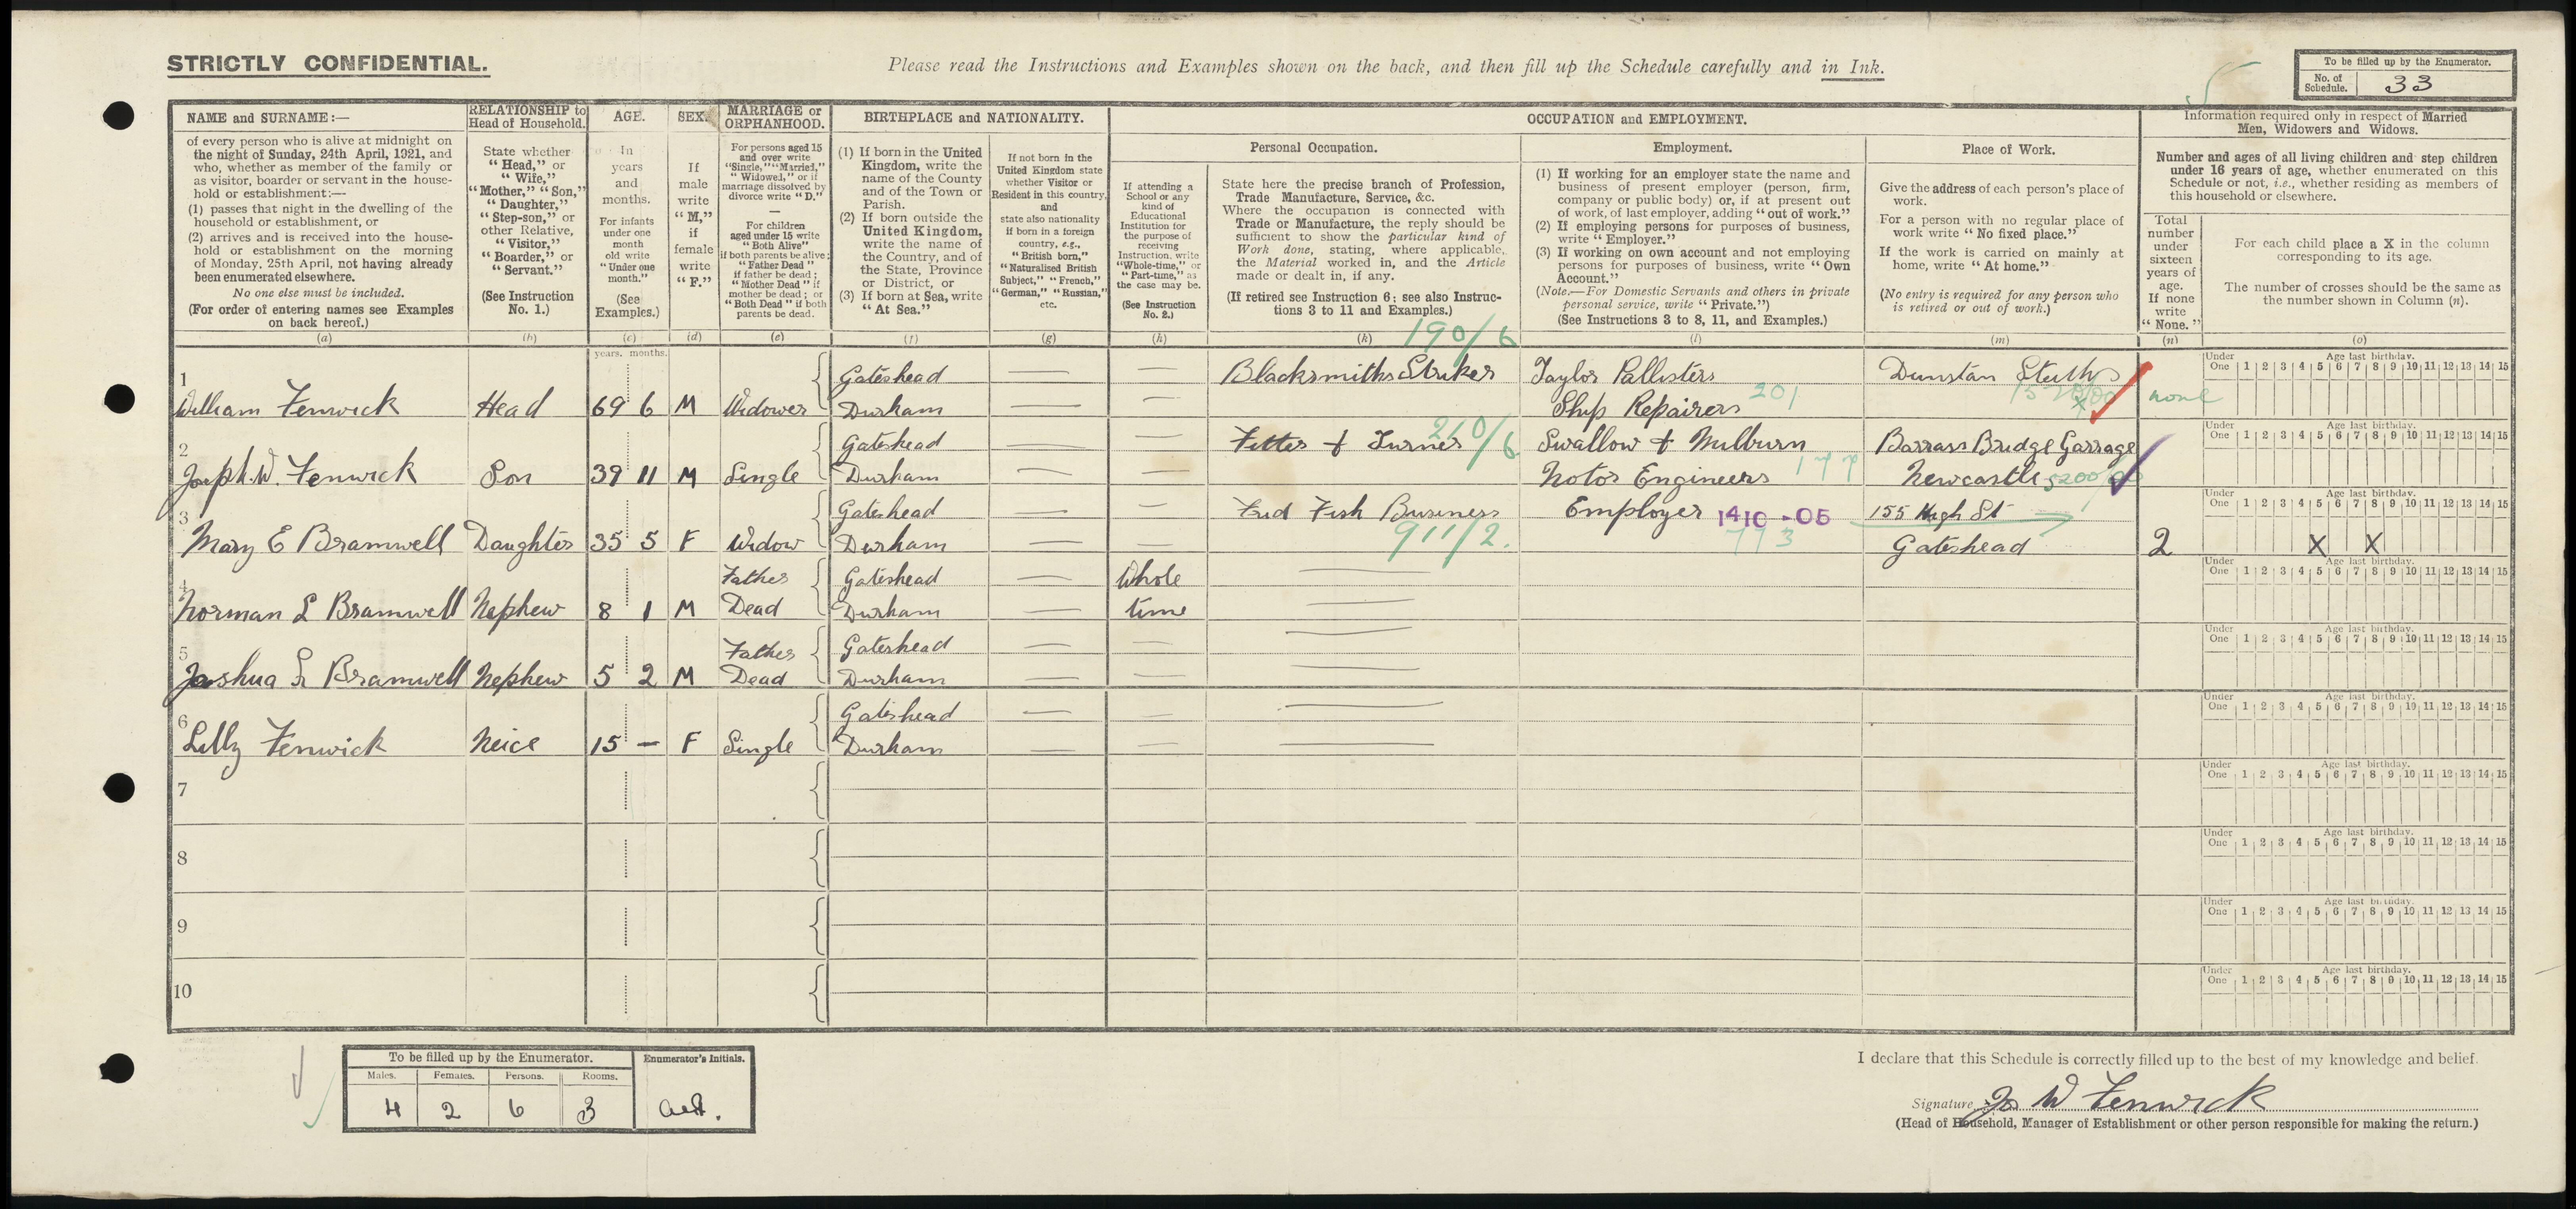 STRICTLY CONFIDENTIAL.
Please read the Instructions and Examples shown on the back, and then fill up the Schedule carefully and in Ink.
To be filled up by the Enumerator.
No. of Schedule. 33
NAME and SURNAME:—
of every person who is alive at midnight on
the night of Sunday, 24th April, 1921, and
who, whether as member of the family or
as visitor, boarder or servant in the house-
hold or establishment:—
(1) passes that night in the dwelling of the
household or establishment, or
(2) arrives and is received into the house-
hold or establishment on the morning
of Monday, 25th April, not having already
been enumerated elsewhere.
No one else must be included.
(For order of entering names see Examples
on back hereof.)
(a)
RELATIONSHIP to
Head of Household.
State whether
"Head," or
"Wife,"
"Mother," "Son,"
"Daughter,"
"Step-son," or
other Relative,
"Visitor,"
"Boarder," or
"Servant."
(See Instruction
No. 1.)
(b)
AGE.
In
years
and
months.
For infants
under one
month
old write
"Under one
month."
(See
Examples.)
(c)
SEX.
If
male
write
"M,"
if
female
write
"F."
(d)
MARRIAGE or
ORPHANHOOD.
For persons aged 15
and over write
"Single," "Married,"
"Widowed," or if
marriage dissolved by
divorce write "D."
—
For children
aged under 15 write
"Both Alive"
if both parents be alive;
"Father Dead"
if father be dead;
"Mother Dead" if
mother be dead; or
"Both Dead" if both
parents be dead.
(e)
BIRTHPLACE and NATIONALITY.
(1) If born in the United
Kingdom, write the
name of the County
and of the Town or
Parish.
(2) If born outside the
United Kingdom,
write the name of
the Country, and of
the State, Province
or District, or
(3) If born at Sea, write
"At Sea."
(f)
If not born in the
United Kingdom state
whether Visitor or
Resident in this country,
and
state also nationality
if born in a foreign
country, e.g.,
"British born,"
"Naturalised British
Subject," "French,"
"German," "Russian,"
etc.
(g)
OCCUPATION and EMPLOYMENT.
If attending a
School or any
kind of
Educational
Institution for
the purpose of
receiving
Instruction, write
"Whole-time," or
"Part-time," as
the case may be.
(See Instruction
No. 2.)
(h)
Personal Occupation.
State here the precise branch of Profession,
Trade Manufacture, Service, &c.
Where the occupation is connected with
Trade or Manufacture, the reply should be
sufficient to show the particular kind of
Work done, stating, where applicable,
the Material worked in, and the Article
made or dealt in, if any.
(If retired see Instruction 6; see also Instruc-
tions 3 to 11 and Examples.)
(k)
Employment.
(1) If working for an employer state the name and
business of present employer (person, firm,
company or public body) or, if at present out
of work, of last employer, adding "out of work."
(2) If employing persons for purposes of business,
write "Employer."
(3) If working on own account and not employing
persons for purposes of business, write "Own
Account."
(Note.—For Domestic Servants and others in private
personal service, write "Private.")
(See Instructions 3 to 8, 11, and Examples.)
(l)
Place of Work.
Give the address of each person's place of
work.
For a person with no regular place of
work write "No fixed place."
If the work is carried on mainly at
home, write "At home."
(No entry is required for any person who
is retired or out of work.)
(m)
Information required only in respect of Married
Men, Widowers and Widows.
Number and ages of all living children and step children
under 16 years of age, whether enumerated on this
Schedule or not, i.e., whether residing as members of
this household or elsewhere.
Total
number
under
sixteen
years of
age.
If none
write
"None."
(n)
For each child place a X in the column
corresponding to its age.
The number of crosses should be the same as
the number shown in Column (n).
(o)
years. months.
190/6
1 Gateshead — — Blacksmiths Striker Taylor Pallisters
William Fenwick Head 69 6 M Widower Durham — — Ship Repairers 201 none
Under One 1 2 3 4 5 6 7 8 9 10 11 12 13 14 15
Age last birthday.
2 Gateshead — — Fitter & Turner 210/6 Swallow & Milburn Barrass Bridge Garrage
Joseph. W. Fenwick Son 39 11 M Single Durham — — Motor Engineers 177 Newcastle
Under One 1 2 3 4 5 6 7 8 9 10 11 12 13 14 15
Age last birthday.
3 Gateshead — — Fried Fish Business Employer 1410-05 155 High St
Mary E Bramwell Daughter 35 5 F Widow Durham — — 911/2. 773 Gateshead 2 X X
Under One 1 2 3 4 5 6 7 8 9 10 11 12 13 14 15
Age last birthday.
4 Father Gateshead — Whole —
Norman L Bramwell Nephew 8 1 M Dead Durham — time —
Under One 1 2 3 4 5 6 7 8 9 10 11 12 13 14 15
Age last birthday.
5 Father Gateshead — — —
Joshua L Bramwell Nephew 5 2 M Dead Durham — — —
Under One 1 2 3 4 5 6 7 8 9 10 11 12 13 14 15
Age last birthday.
6 Gateshead — — —
Lilly Fenwick Neice 15 — F Single Durham — — —
Under One 1 2 3 4 5 6 7 8 9 10 11 12 13 14 15
Age last birthday.
7
Under One 1 2 3 4 5 6 7 8 9 10 11 12 13 14 15
Age last birthday.
8
Under One 1 2 3 4 5 6 7 8 9 10 11 12 13 14 15
Age last birthday.
9
Under One 1 2 3 4 5 6 7 8 9 10 11 12 13 14 15
Age last birthday.
10
Under One 1 2 3 4 5 6 7 8 9 10 11 12 13 14 15
Age last birthday.
To be filled up by the Enumerator.
Enumerator's Initials.
Males. Females. Persons. Rooms.
4 2 6 3
I declare that this Schedule is correctly filled up to the best of my knowledge and belief.
Signature Jos W Fenwick
(Head of Household, Manager of Establishment or other person responsible for making the return.)